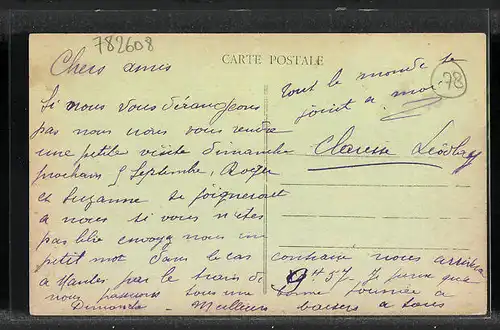 782608
CARTE POSTALE
78
Chers amis
Si nous vous dérangeons
pas nous irons vous rendre
une petite visite dimanche
prochain 5 Septembre, Roger
et Suzanne se joignerait
a nous si vous n'êtes
pas libre envoyez nous un
petit mot Dans le cas contraire nous arriverons
a Mantes par le train de 9 H 57. Je pense que
nous passerons tous une bonne journée a
Dimanche - Meilleurs baisers a tous
tout le monde se
joint a moi
Clarisse